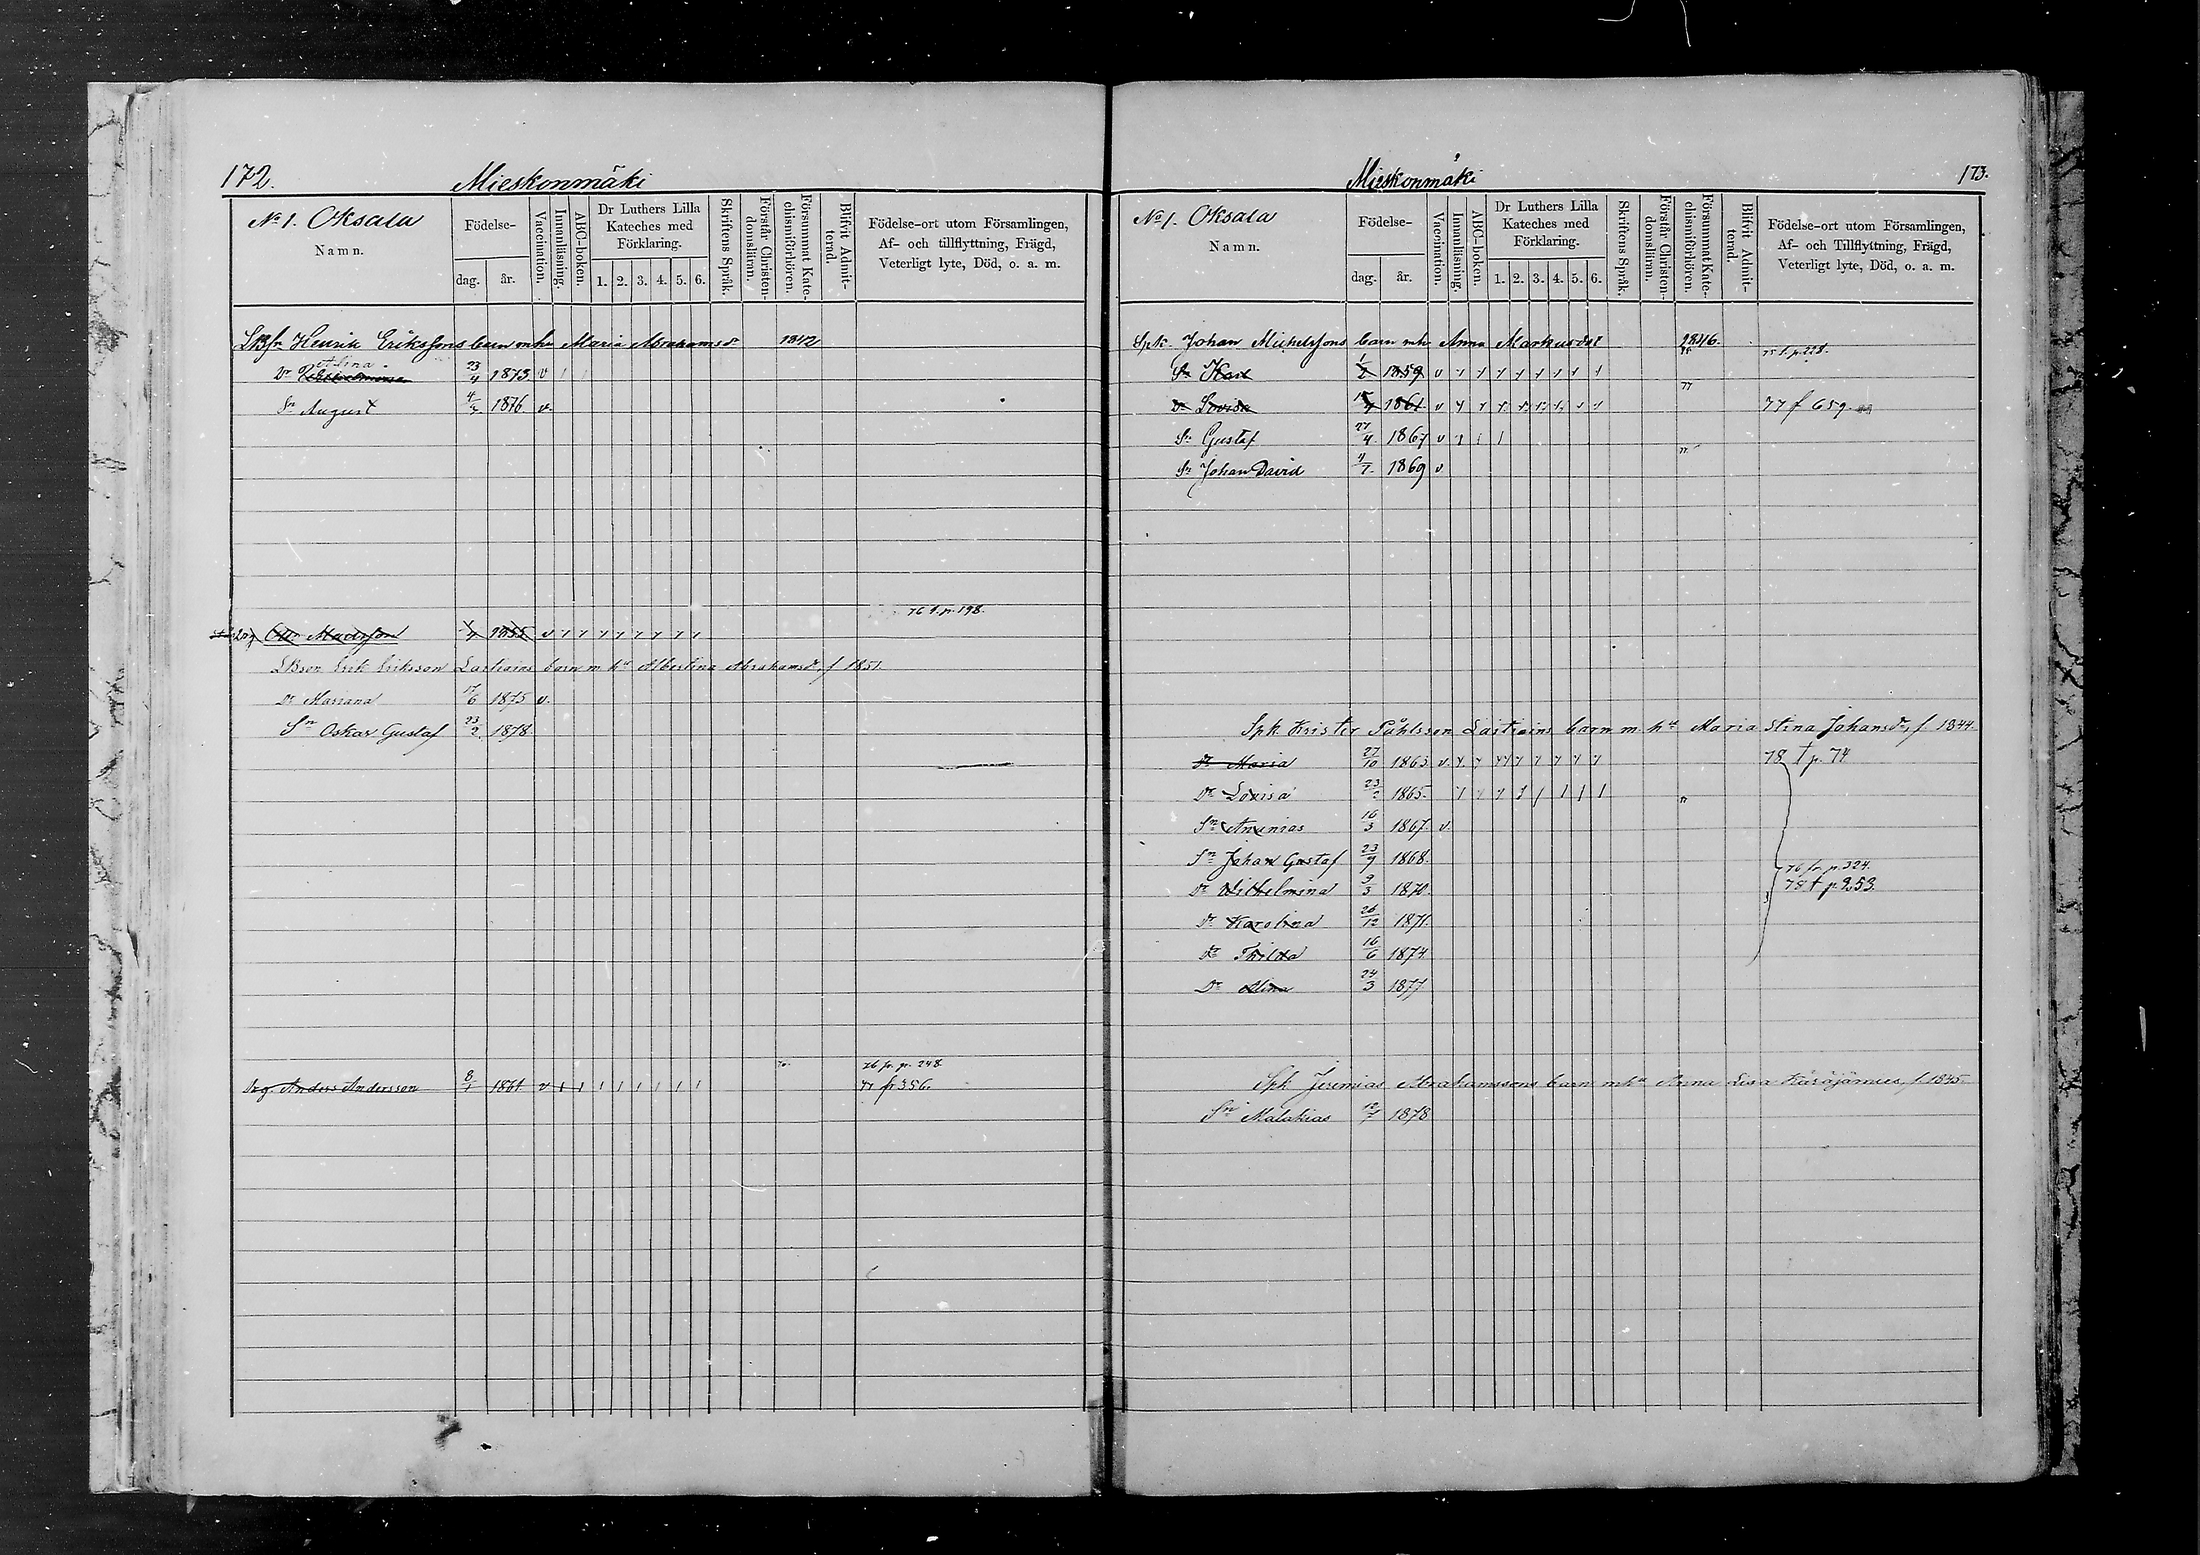 172. Mieskonmäki
No 1. Oksala
Namn.
Födelse-
dag. år.
Vaccination.
Innanläsning.
ABC-boken.
Dr Luthers Lilla
Kateches med
Förklaring.
1. 2. 3. 4. 5. 6.
Skriftens Språk.
Förstår Christen-
domsläran.
Försummat Kate-
chismiförhören.
Blifvit Admit-
terad.
Födelse-ort utom Församlingen,
Af- och tillflyttning, Frägd,
Veterligt lyte, Död, o. a. m.
LBfr Henrik Erikssons barn m hu Maria Abrahamsdr 1842
Alina
Dr 23/4 1873 v
Sn August 4/3 1876 v.
76 f. p. 198.
Drg Otto Madsson 1855 v
LBson Erik Eriksson Lastrains barn m. hu Albertina Abrahamsdr f 1851.
Dr Mariana 17/6 1875 v.
Sn Oskar Gustaf 23/2 1878.
76 fr. p. 248
Drg. Anders Andersson 8/1 1861 v 77 fr 356.
Mieskonmäki 173.
No 1. Oksala
Namn.
Födelse-
dag. år.
Vaccination.
Innanläsning.
ABC-boken.
Dr Luthers Lilla
Kateches med
Förklaring.
1. 2. 3. 4. 5. 6.
Skriftens Språk.
Förstår Christen-
domsläran.
Försummat Kate-
chismiförhören.
Blifvit Admit-
terad.
Födelse-ort utom Församlingen,
Af- och Tillflyttning, Frägd,
Veterligt lyte, Död, o. a. m.
Spk. Johan Michelssons barn mhu Anna Markusdr 1846.
75 f. p. 228.
Sn Karl 1/2 1859 v
77
Dr Lovisa 1861 v 77 f 659.
Sn Gustaf 27/4 1867 v
77
Sn Johan David 4/7 1869 v
Spk Krister Påhlsson Lastrains barn m. hu Maria Stina Johansdr, f 1844.
Dr Maria 27/10 1863 v. 78 † p. 74
Dr Lovisa 23/2 1865. 77
Sn Ananias 16/3 1867. v.
Sn Johan Gustaf 23/9 1868.
76 fr. p. 324.
Dr Wilhelmina 9/3 1870. 78 † p. 253.
Dr Karolina 26/12 1871.
Dr Thilda 16/6 1874
Dr Alina 24/3 1877
Spk Jeremias Abrahamssons barn mhu Anna Lisa Käräjämies, f. 1845.
Sn Malakias 12/7 1878